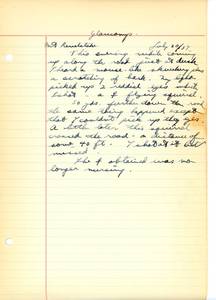 Glaucomys.
July 20/37
This evening while coming
up along the road just at dusk
I heard a mouse like squeaking and
a scratching of bark. My light
picked up 2 reddish eyes which
I shot - a ♀ flying squirrel.
50 yds. further down the road
the same thing happened except
that I couldn't pick up the eyes.
A little later the squirrel
crossed the road - a distance of
some 40 ft. I shot at it but
missed.
The ♀ obtained was no
longer nursing.